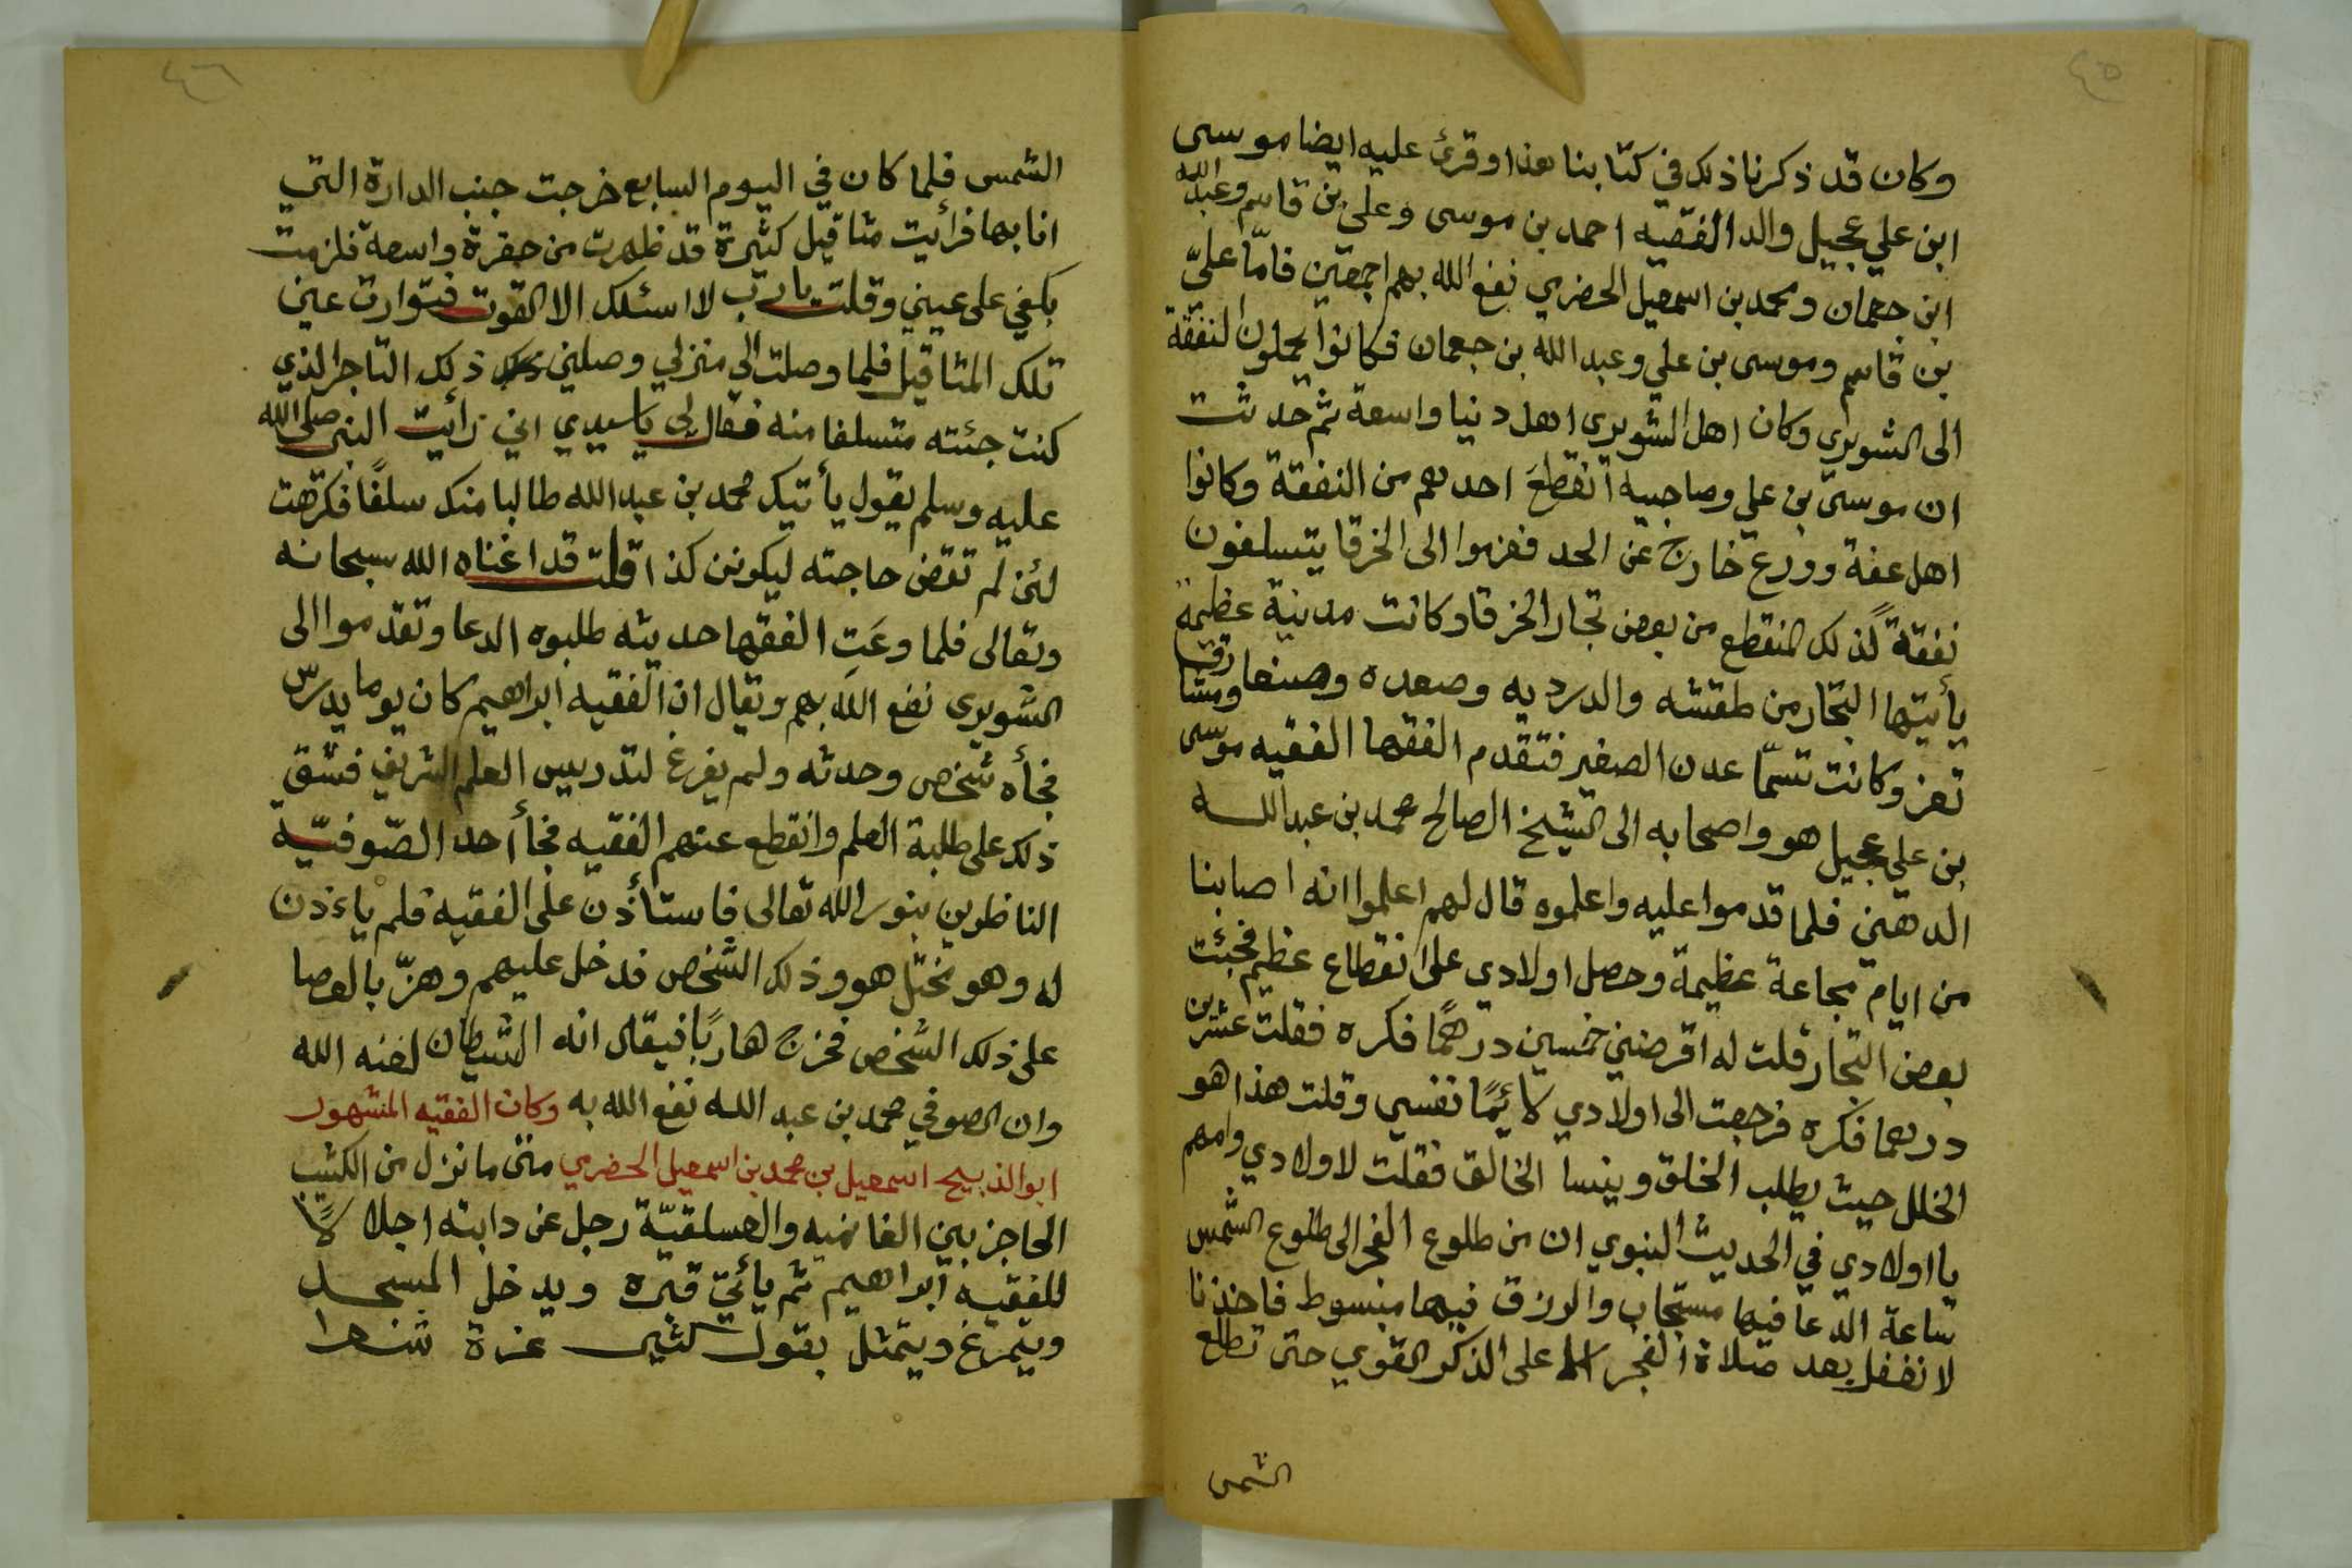 ٤٥
وكان قد ذكرنا ذلك في كتابنا هذا وقرئ عليه ايضا موسى
ابن علي عجيل والد الفقيه احمد بن موسى وعلى بن قاسم وعبد الله
ابن جعمان ومحمد بن اسمعيل الحضرمي نفع الله بهم اجمعين فامّا علىّ
بن قاسم وموسى بن علي وعبد الله بن جعمان فكانوا يحملون النفقة
الى الشويرى وكان اهل الشويرى اهل دنيا واسعة ثم حدثت
ان موسى بن علي وصاحبيه انقطعَ احدهم من النفقة وكانوا
اهل عفة وورع خارج عن الحد فعزموا الى الخرقا يتسلفون
نفقةً لذلك المنقطع من بعض تجار الخرقا وكانت مدينة عظيمة
يأيتها التجار من طقتشه والدرديه وصعده وصنعا ومشارق
تعز وكانت تسمّا عدن الصغير فتقدم الفقها الفقيه موسى
بن علي عجيل هو واصحابه الى الشيخ الصالح محمد بن عبد الله
الدهني فلما قدموا عليه واعلموه قال لهم اعلموا انه اصابنا
من ايام مجاعة عظيمة وحصل اولادي على انقطاع عظيم فجئت
بعض التجار قلت له اقرضني خمسين درهمًا فكره فقلت عشرين
درهما فكره فرجعت الى اولادي لائمًا نفسي وقلت هذا هو
الخلل حيث يطلب الخلق وينسا الخالق فقلت لاولادي وامهم
يا اولادي في الحديث النبوي ان من طلوع الفجر الى طلوع الشمس
ساعة الدعا فيها مستجاب والرزق فيها مبسوط فاخذنا
لا نغفل بعد صلاة الفجر على الذكر القوي حتى تطلع
الشمس
٤٦
الشمس فلما كان في اليوم السابع خرجت جنب الدارة التي
انا بها فرأيت مثاقيل كثيرة قد ظهرت من حفرة واسعة فلزمت
بكفي على عيني وقلت يا رب لا اسئلك الا القوت فتوارت عني
تلك المثاقيل فلما وصلت الى منزلي وصلني ذلك التاجر الذي
كنت جئته متسلفا منه فقال لى يا سيدي اني رأيت النبى صلى الله
عليه وسلم يقول يأتيك محمد بن عبد الله طالبا منك سلفًا فكرهت
لئن لم تقض حاجته ليكونن كذا قلت قد اغناه الله سبحانه
وتعالى فلما وعَتِ الفقها حديثه طلبوه الدعا وتقدموا الى
الشويرى نفع الله بهم ويقال ان الفقيه ابراهيم كان يوما يدرّس
فجأه شخص وحدثه ولم يفرغ لتدريس العلم الشريف فشق
ذلك على طلبة العلم وانقطع عنهم الفقيه فجأ أحد الصّوفيّة
الناظرين بنور الله تعالى فاستأذن على الفقيه فلم ياءذن
له وهو مختل هو وذلك الشخص فدخل عليهم وهزّ بالعصا
على ذلك الشخص فخرج هاربًا فيقال انه الشيطان لعنه الله
وان الصوفي محمد بن عبد الله نفع الله به وكان الفقيه المشهور
ابو الذبيح اسمعيل بن محمد بن اسمعيل الحضرمي متى ما نزل من الكثيب
الحاجز بين الغانميه والعسلقيّة رجل عن دابته اجلالاً
للفقيه ابراهيم ثم يأتي قبره ويدخل المسجد
ويتمرغ ويتمثل بقول كثير عزة شعرا